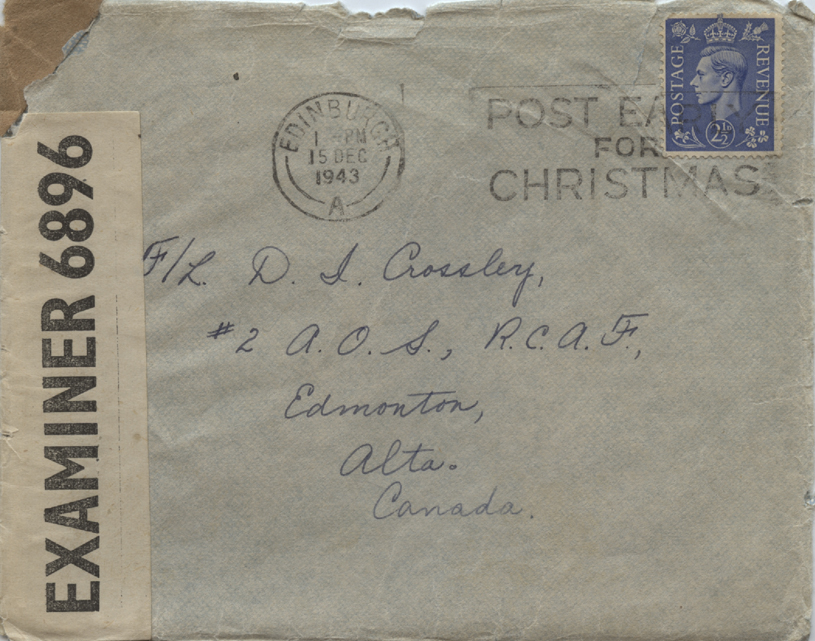 EXAMINER 6896
EDINBURGH
PM
15 DEC
1943
A
POST
FOR
CHRISTMAS
POSTAGE
REVENUE
2½
F/L. D. I. Crossley,
#2 A.O.S., R.C.A.F.,
Edmonton,
Alta.
Canada.